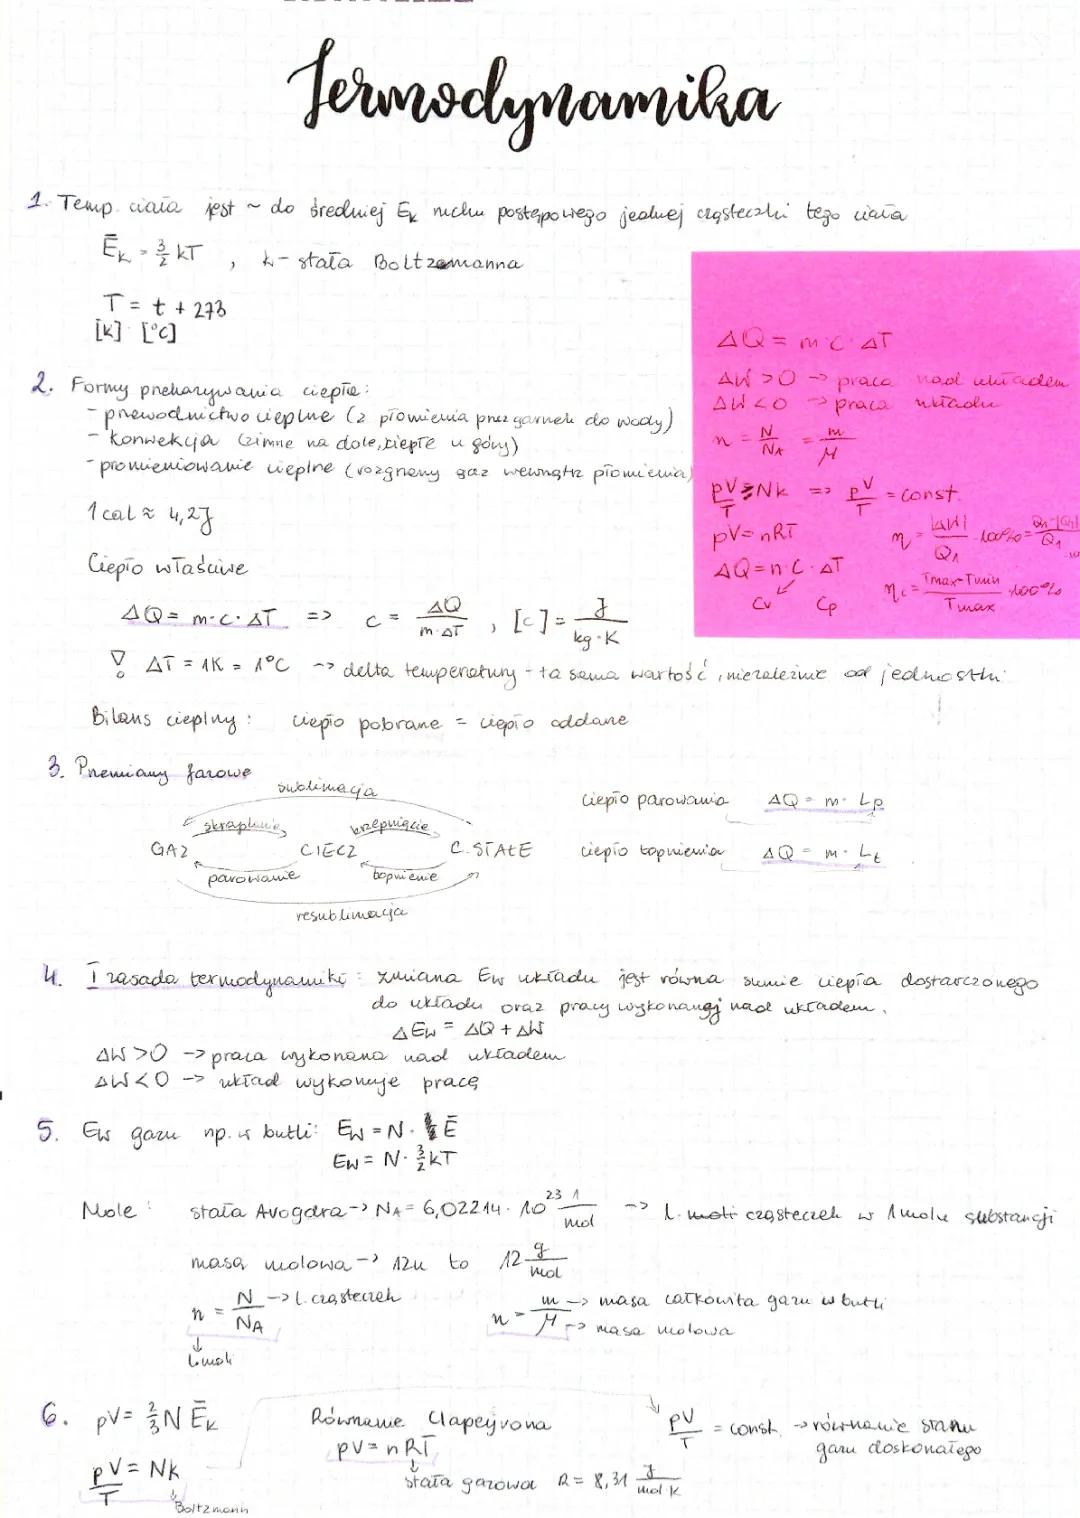 Termodynamika
1. Temp. ciała jest ~ do średniej Ek ruchu postępowego jednej cząsteczki tego ciała
Ēk = 3/2 kT , k - stała Boltzmanna
T = t + 273
[K] [°C]
2. Formy przekazywania ciepła:
- przewodnictwo cieplne (z płomienia przez garnek do wody)
- konwekcja (zimne na dole, ciepłe u góry)
- promieniowanie cieplne (rozgrzany gaz wewnątrz płomienia)
1 cal ≈ 4,2J
Ciepło właściwe
ΔQ = m·c·ΔT => c = ΔQ / m·ΔT , [c] = J / kg·K
! ΔT = 1K = 1°C -> delta temperatury - ta sama wartość, niezależnie od jednostki
Bilans cieplny: ciepło pobrane = ciepło oddane
ΔQ = m·c·ΔT
ΔW > 0 -> praca nad układem
ΔW < 0 -> praca układu
n = N/NA = m/M
pV/T = Nk => pV/T = const.
pV = nRT
η = |ΔW|/Q1 · 100% = Q1-|Q2|/Q1
ΔQ = n·C·ΔT
Cv Cp
ηc = Tmax-Tmin/Tmax · 100%
3. Przemiany fazowe
sublimacja
skraplanie krzepnięcie
GAZ CIECZ C. STAŁE
parowanie topnienie
resublimacja
ciepło parowania ΔQ = m · Lp
ciepło topnienia ΔQ = m · Lt
4. I zasada termodynamiki: zmiana Ew układu jest równa sumie ciepła dostarczonego
do układu oraz pracy wykonanej nad układem.
ΔEw = ΔQ + ΔW
ΔW > 0 -> praca wykonana nad układem
ΔW < 0 -> układ wykonuje pracę
5. Ew gazu np. w butli: Ew = N · Ē
Ew = N · 3/2 kT
Mole: stała Avogadra -> NA = 6,02214 · 10^23 1/mol -> l. cząsteczek w 1 molu substancji
masa molowa -> 12u to 12 g/mol
n = N/NA -> l. cząsteczek
l. moli
n = m/M -> masa całkowita gazu w butli
-> masa molowa
6. pV = 2/3 N Ēk
pV/T = Nk
Boltzmann
Równanie Clapeyrona
pV = nRT
stała gazowa R = 8,31 J/mol·K
pV/T = const. -> równanie stanu
gazu doskonałego